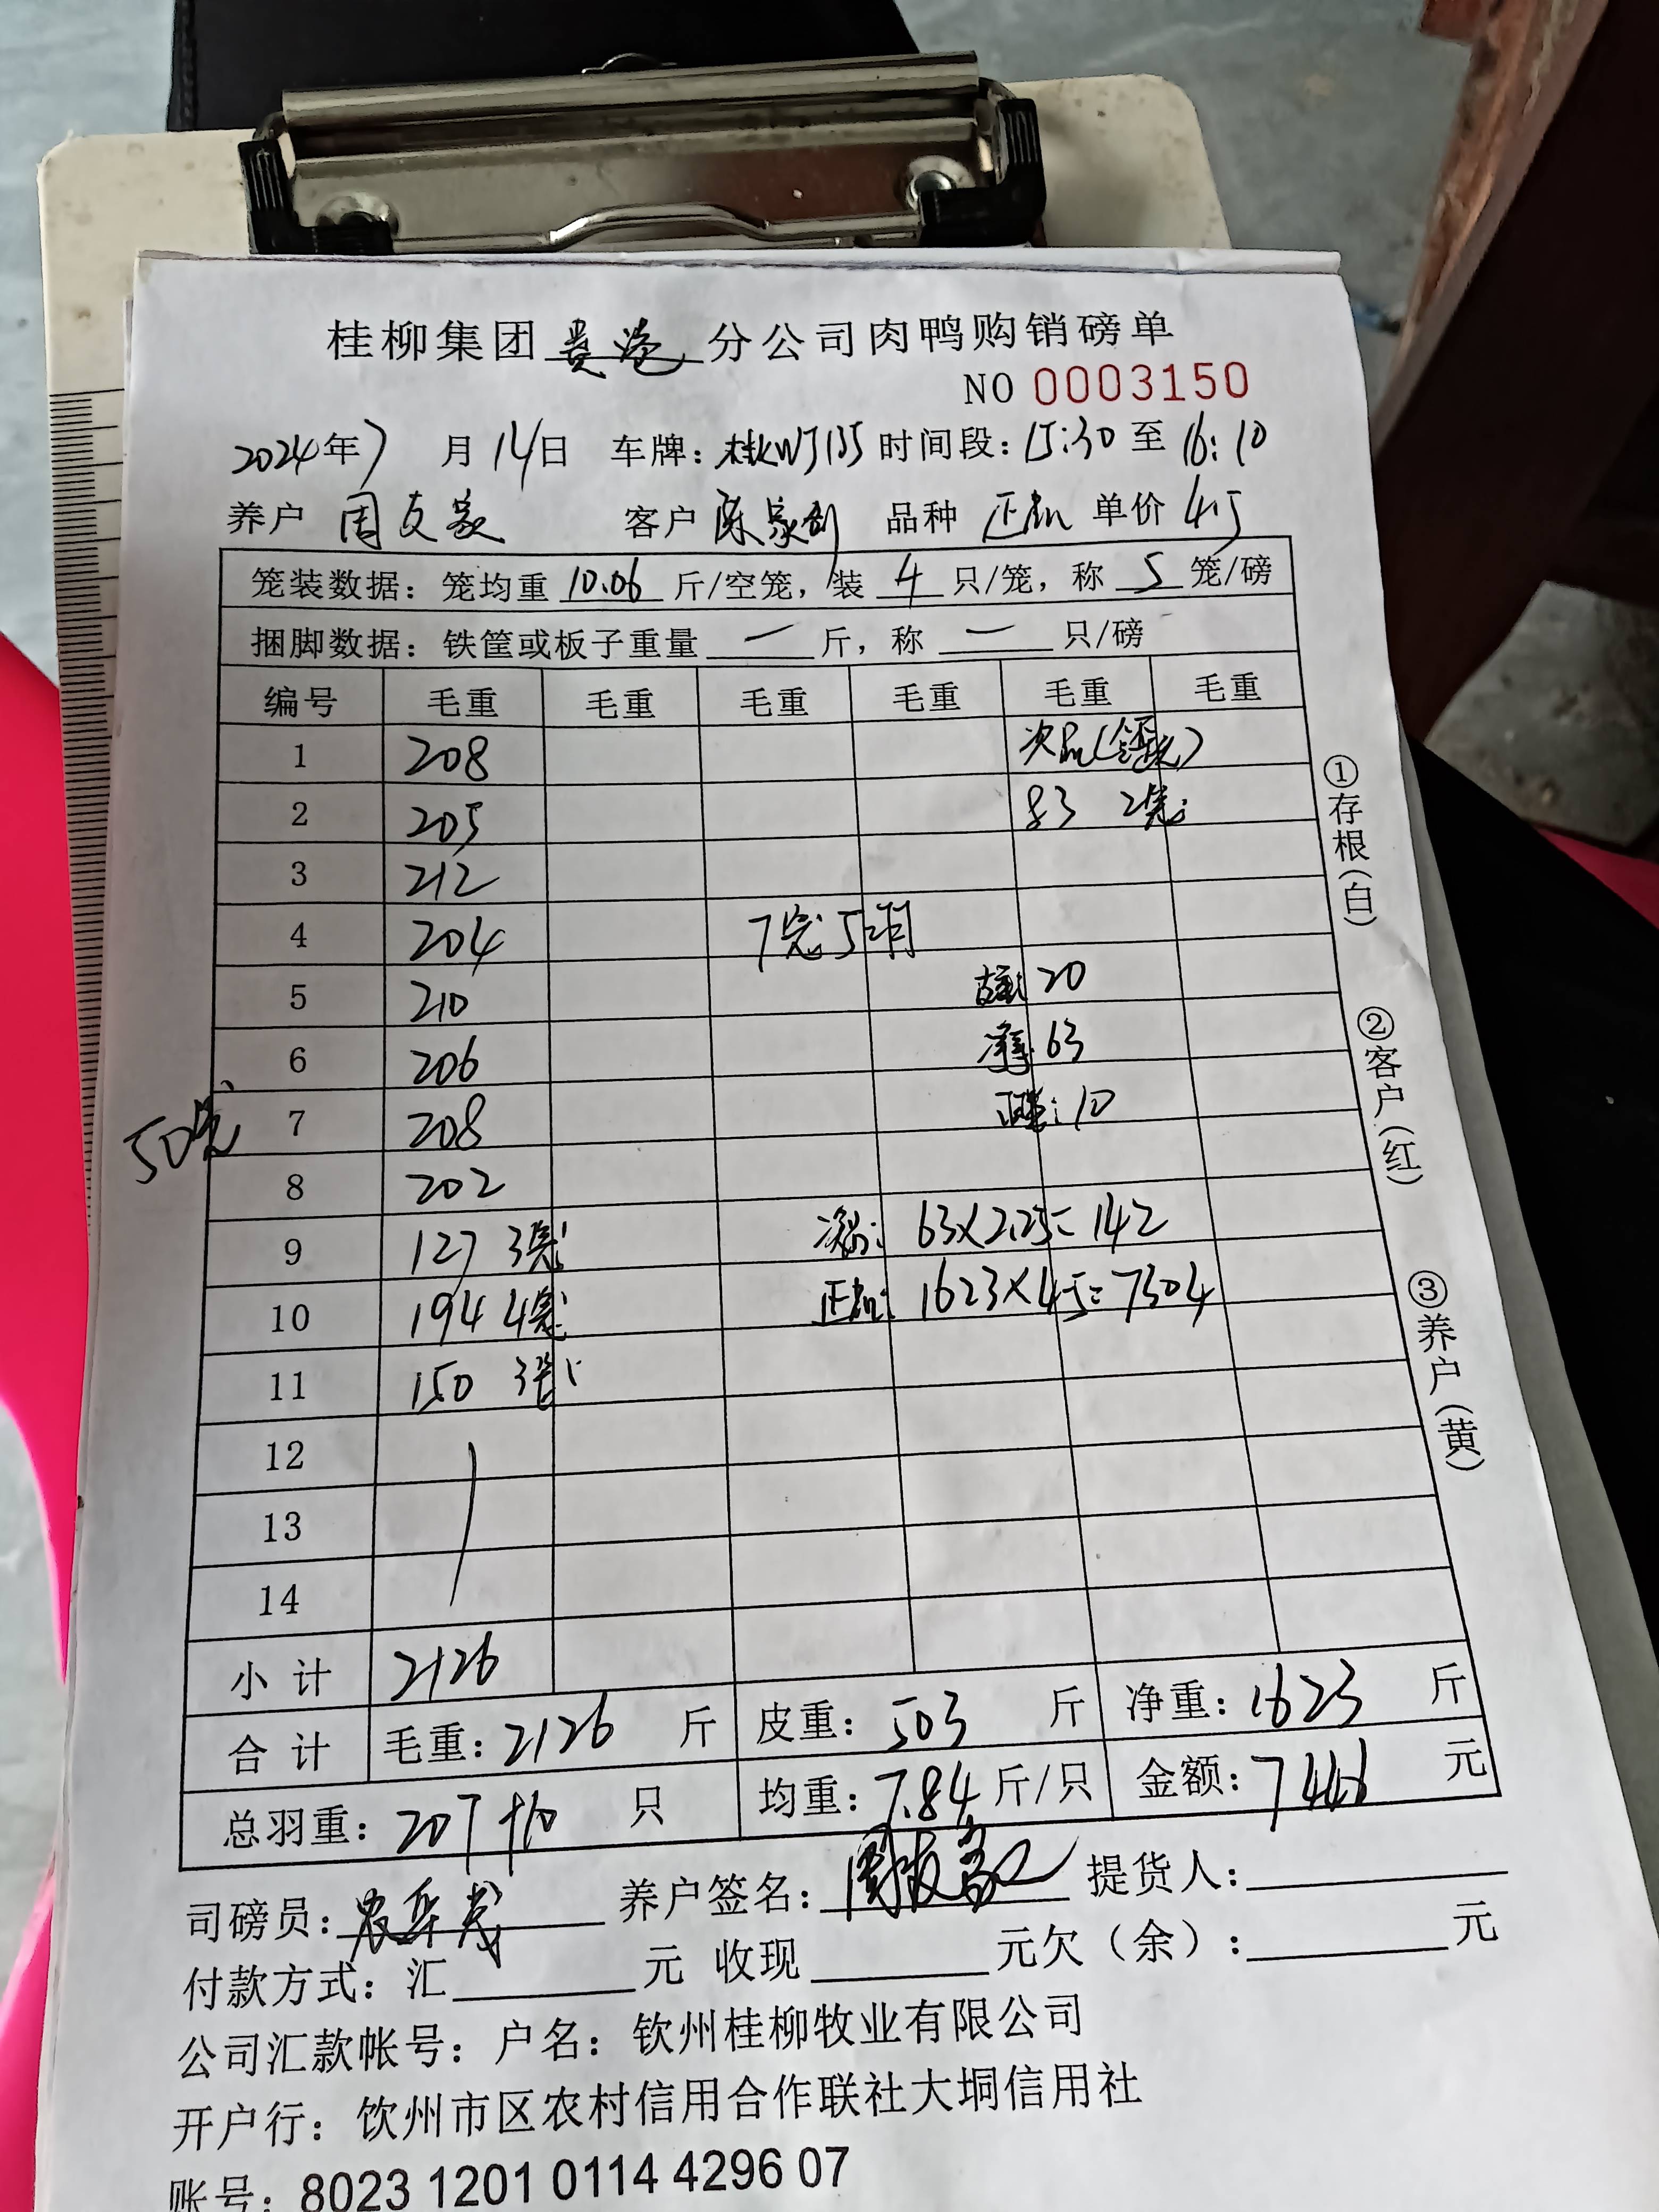 桂柳集团贵港分公司肉鸭购销磅单
NO 0003150
2024年7月14日 车牌:桂WJ135 时间段:15:30至16:10
养户 周友家 客户 陈家剑 品种 正品 单价 4.5
笼装数据:笼均重 10.06 斤/空笼,装 4 只/笼,称 5 笼/磅
捆脚数据:铁筐或板子重量 — 斤,称 — 只/磅
编号 毛重 毛重 毛重 毛重 毛重 毛重
1 208 次品
2 205 83 2笼
3 212
4 204 7笼5羽
5 210 20
6 206 净重 63
50笼 7 208 10
8 202
9 127 3笼 次品: 63×2.25=142
10 194 4笼 正品: 1623×4.5=7304
11 150 3笼
12
13
14
小计 2126
合计 毛重:2126 斤 皮重:503 斤 净重:1623 斤
总羽重:207+10 只 均重:7.84斤/只 金额:7446 元
司磅员: 养户签名: 提货人:
付款方式:汇 元 收现 元欠(余): 元
公司汇款帐号:户名:钦州桂柳牧业有限公司
开户行:钦州市区农村信用合作联社大垌信用社
账号:8023 1201 0114 4296 07
①存根(白)
②客户(红)
③养户(黄)